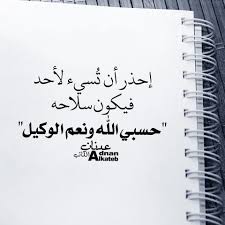 إحذر أن تُسيء لأحد
فيكون سلاحه
"حسبي الله ونعم الوكيل"
عدنان
الكاتب
Adnan
Alkateb